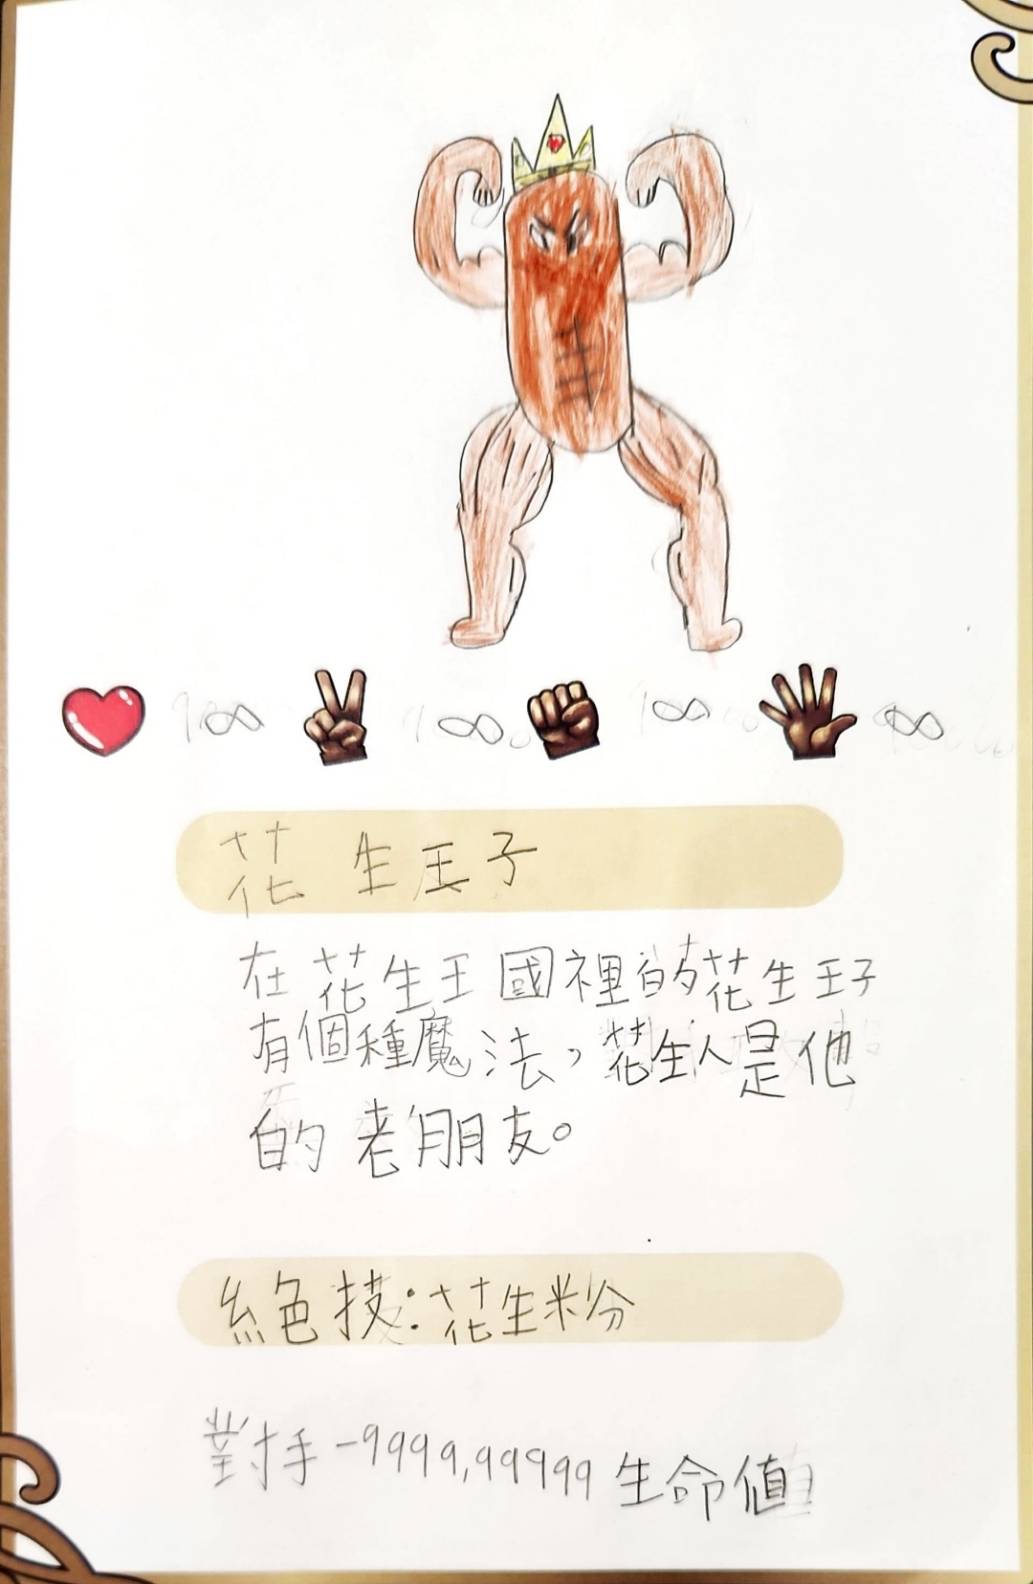 ∞ ∞ ∞ ∞
花生王子
在花生王國裡的花生王子
有個種魔法，花生人是他
的老朋友。
絕技：花生粉
對手-9999,99999生命值